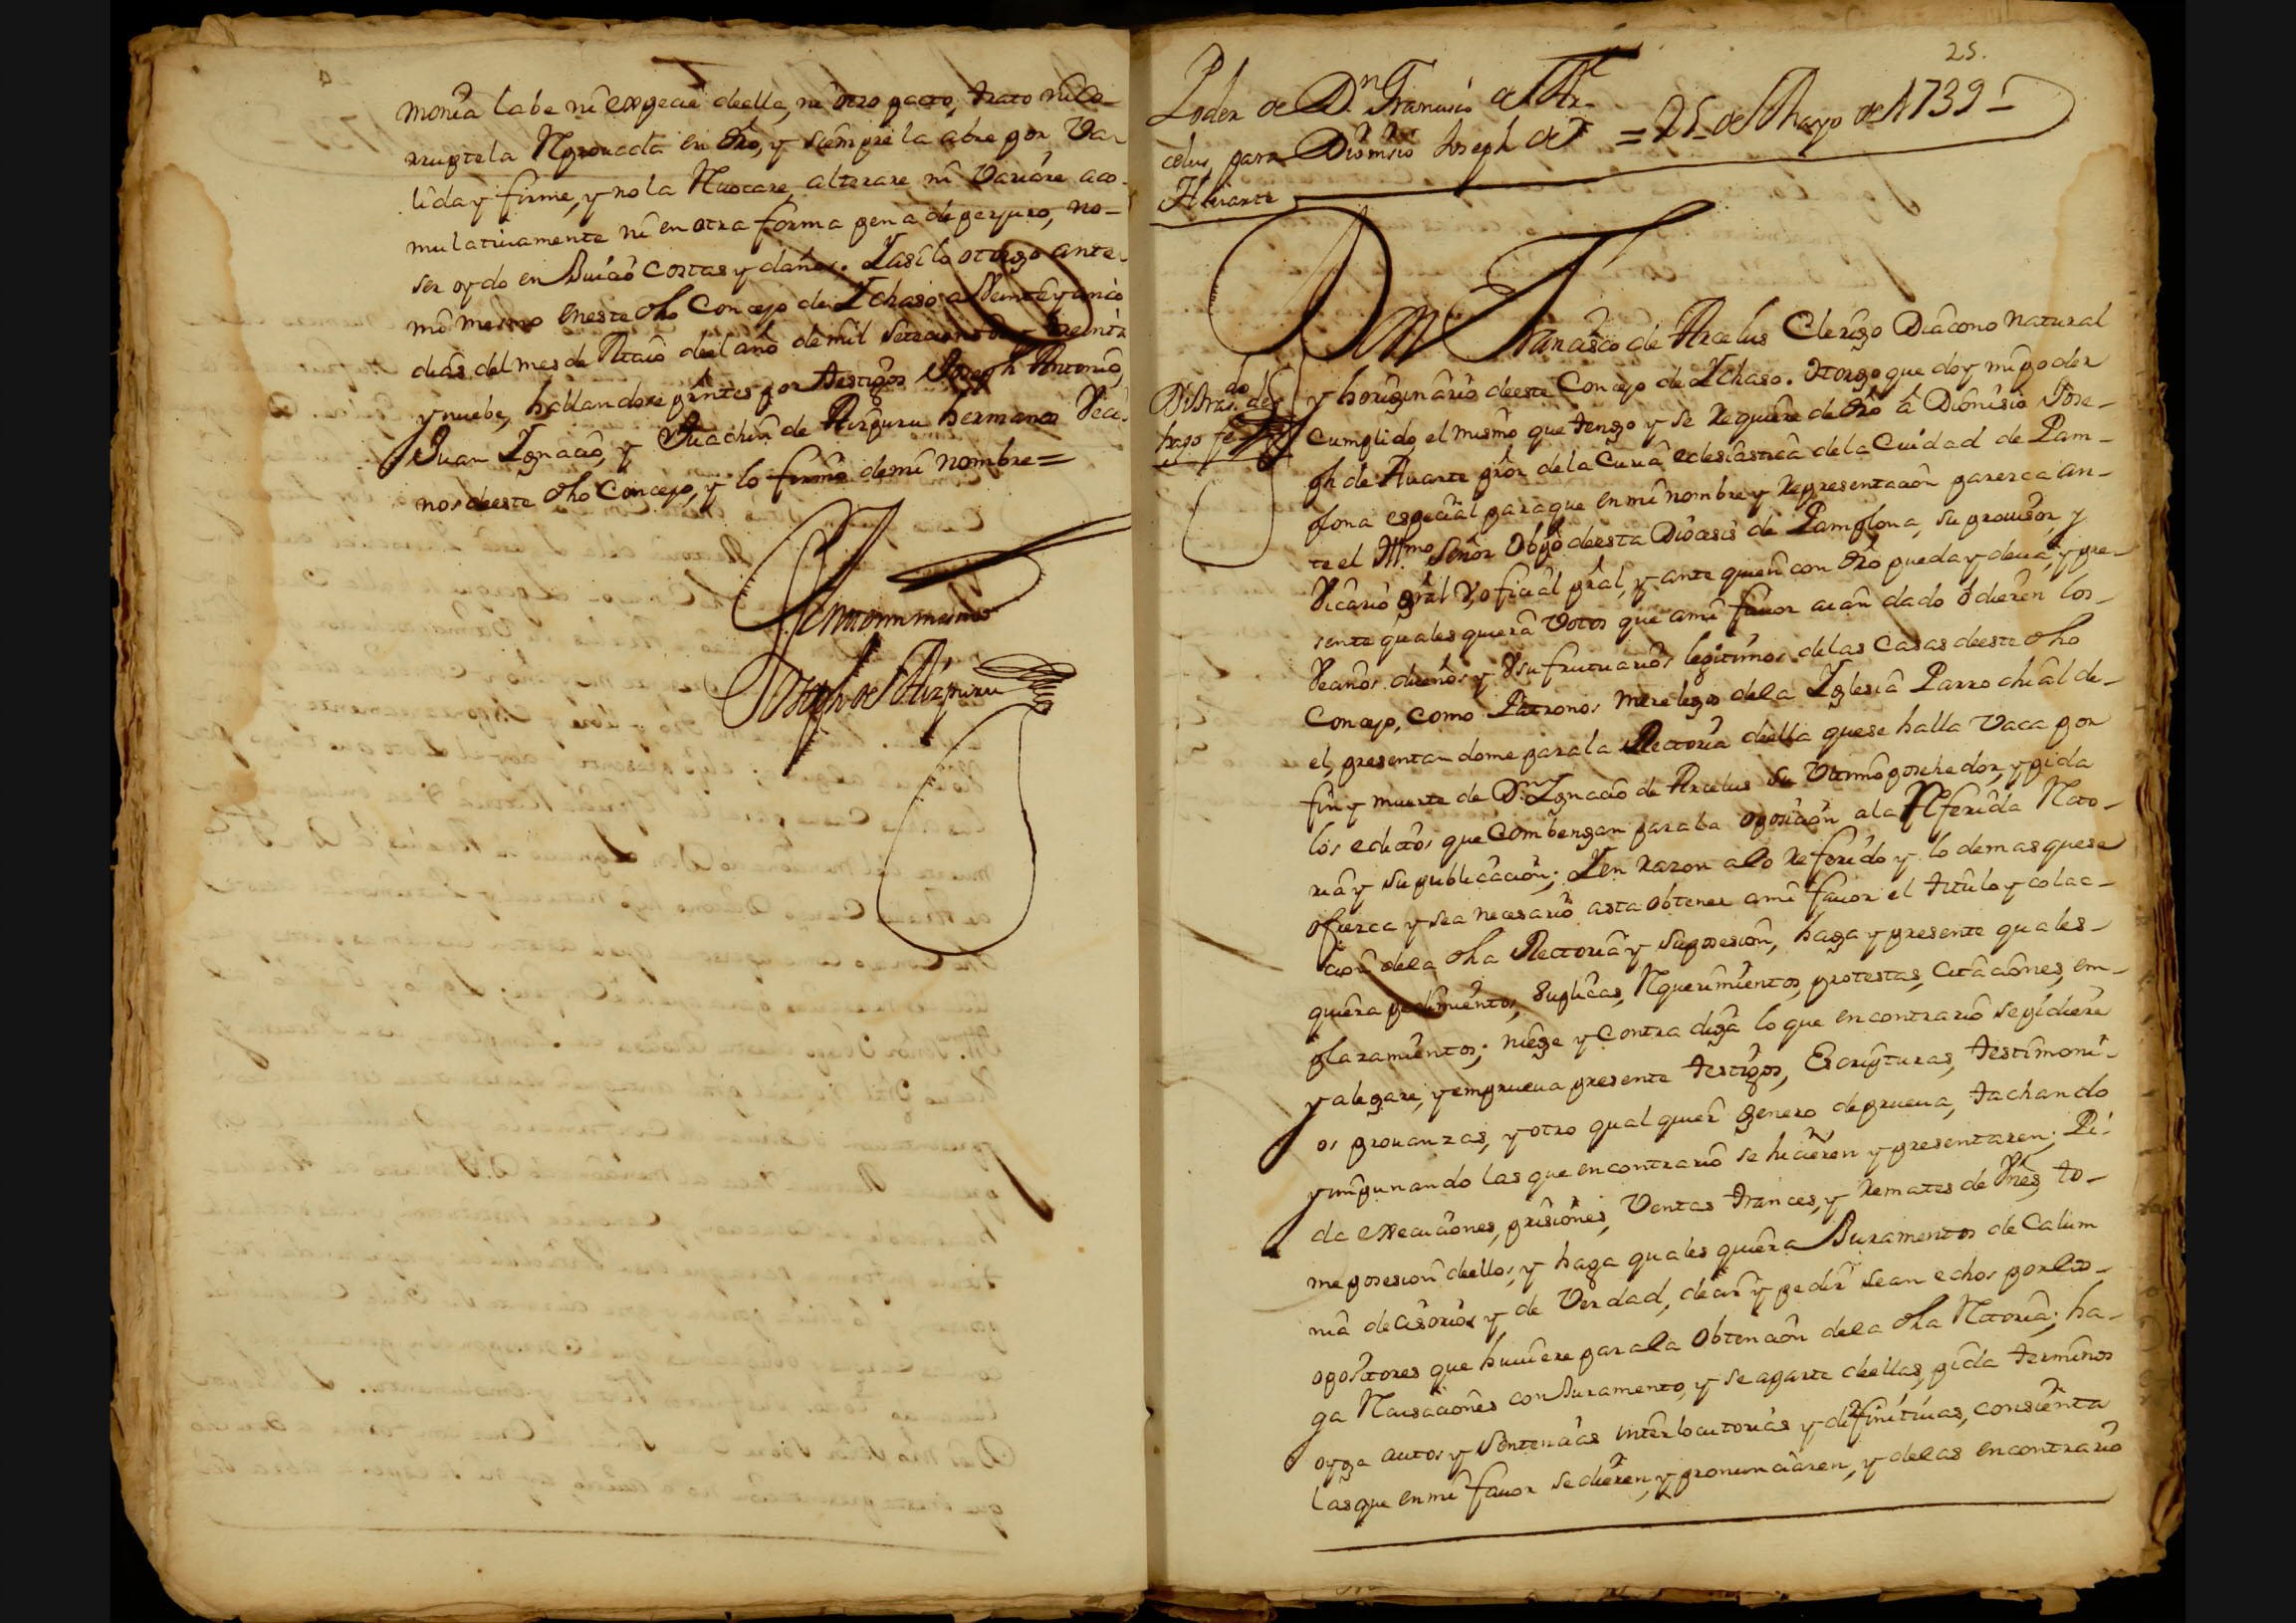 monia labe ni expecie della, ni otro pacto, trato ni co-
rruptela Reprouada en dro, y siempre la abre por Va-
lida y firme, y no la Reuocare, alterare ni Variare aco-
mulatiuamente ni en otra forma pena de perjuro, no-
ser oydo en Juicio costas y daños. Y asi lo otorgo ante-
mi mesmo en este dho Concejo de Ichaso a Veinte y cinco
dias del mes de Maio del año de mil setecientos y treinta
y nuebe, hallandose pntes por testigos Joseph Antonio,
Juan Ignacio, y Juachin de Aizpuru hermanos Veci-
nos deeste dho Concejo, y lo firmo de mi nombre =
Ante mi mesmo
Joseph de Aizpuru
25.
Poder de Dn Francisco de Ar-
celus para Dionisio Joseph de = 25 de Mayo de 1739 =
Iliuarte
Don Francisco de Arcelus Clerigo Diacono natural
y horiginario deeste Concejo de Ichaso. Otorgo que doy mi poder
cumplido, el mismo que tengo y se Requiere de dro â Dionisio Jose-
ph de Iliuarte pror de la Curia eclesiastica de la Ciudad de Pam-
plona especial para que en mi nombre y Representacion parezca an-
te el Illmo Señor Obpo deesta Diocesis de Pamplona, su prouisor, y
Vicario gral y oficial pral, y ante quien con dro pueda y deua, y pre-
sente quales quiera Votos que ami fauor aian dado o dieren los-
Vecinos dueños y Vsufrutuarios legitimos de las Casas deeste dho
Concejo, como Patronos merelegos de la Yglesia Parrochial de-
el, presentandome para la Rectoria della que se halla Vaca por
fin y muerte de Dn Ignacio de Arcelus su Vltimo posehedor, y pida
los edictos que combengan para la oposicion a la Referida Recto-
ria y su publicacion; Y en razon a lo Referido y lo demas que se
ofrezca y sea necesario asta obtener ami fauor el titulo y colac-
cion dela dha Rectoria y su posesion, haga y presente quales-
quiera pedimientos, suplicas, Requerimientos, protestas, citaciones, em-
plazamientos; niege y contradiga lo que en contrario se pidiere
y alegare, y em prueua presente testigos, Escripturas, testimoni-
os prouanzas, y otro qual quier genero de prueua, tachando
y impunando las que en contrario se hicieren y presentaren; Pi-
da execuciones, prisiones, Ventas trances, y Remates de Vnes, to-
me posesion dellos, y haga quales quiera Juramentos de Calum
nia decisorios y de Verdad, decir y pedir sean echos por los-
opositores que huuiere para la Obtencion dela dha Rectoria; ha-
ga Recusaciones con Juramento, y se aparte dellas, pida terminos
oyga autos y sentencias interlocutorias y difinitiuas, consienta
las que en mi fauor se dieren, y pronunciaren, y delas en contrario